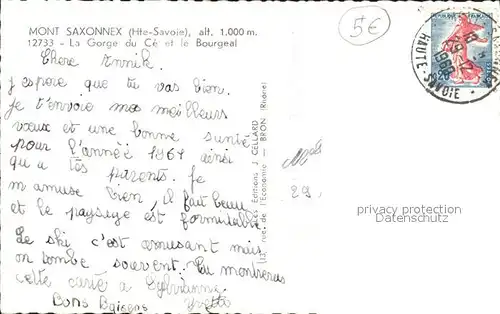 MONT SAXONNEX (Hte-Savoie), alt. 1.000 m.
12733 - La Gorge du Cé et le Bourgeal
5€
HAUTE SAVOIE
Chere Annik.
J'espere que tu vas bien.
Je t'envoie mes meilleurs
vœux et une bonne santé
pour l'année 1961 ainsi
qu'a tes parents. Je
m'amuse bien, il fait beau
et le paysage est formidable
Le ski c'est amusant mais
on tombe souvent. Tu montreras
cette carte a Sylvianne.
Bons Baisers Yvette
29.
Editions J. CELLARD
rue de l'Economie - BRON (Rhône)
privacy protection
Datenschutz